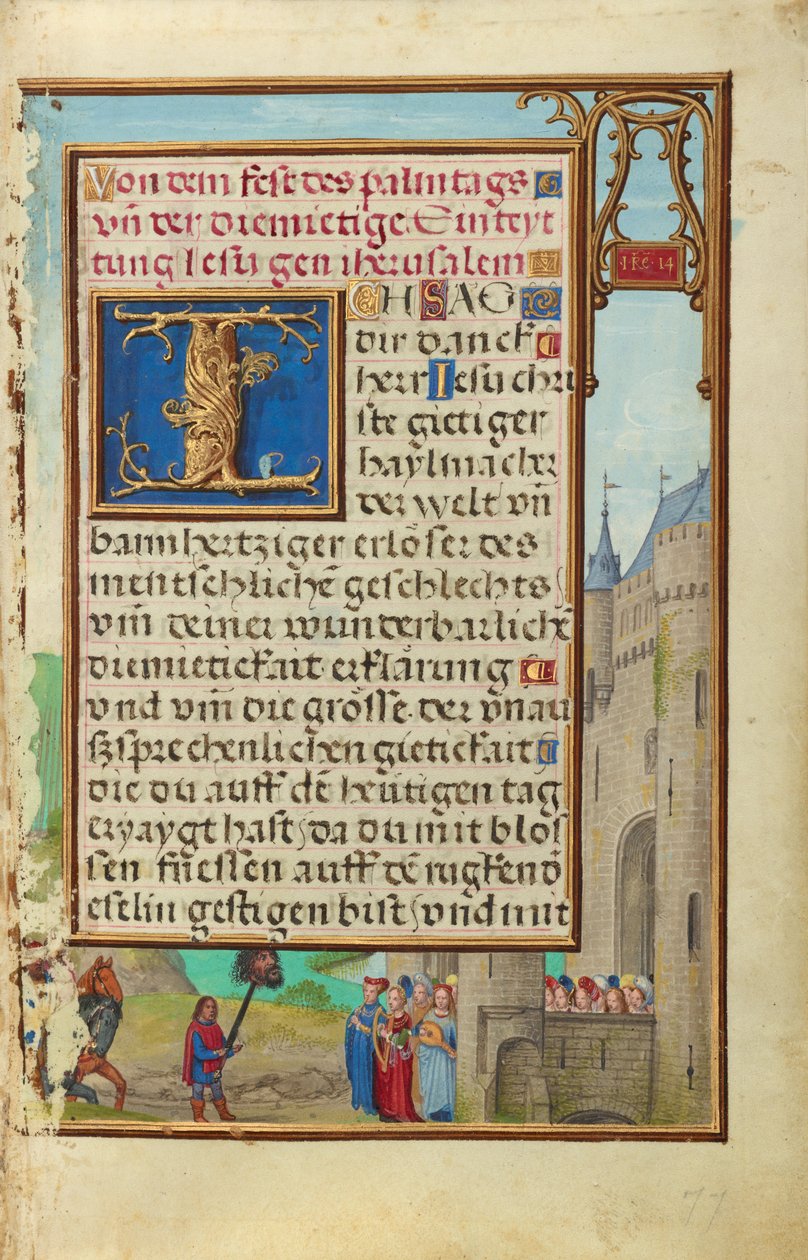 Von dem fest des palmtags
vn̄ der diemietige Einreyt
tung Jesu gen iherusalem
ICH SAG
dir danck
herr Jesu chri
ste gietiger
haylmacher
der welt vn̄
barmhertziger erlöser des
mentschlichē geschlechts
vm̄ deiner wunderbarlichē
diemietickait erklärung
vnd vm̄ die grösse der vnau
szsprechenlichen gietickait
die du auff dē heütigen tag
erzaygt hast da du mit blos
sen fuessen auff dē rugken d̄
eselin gestigen bist vnd mit
·I·RE·14
77